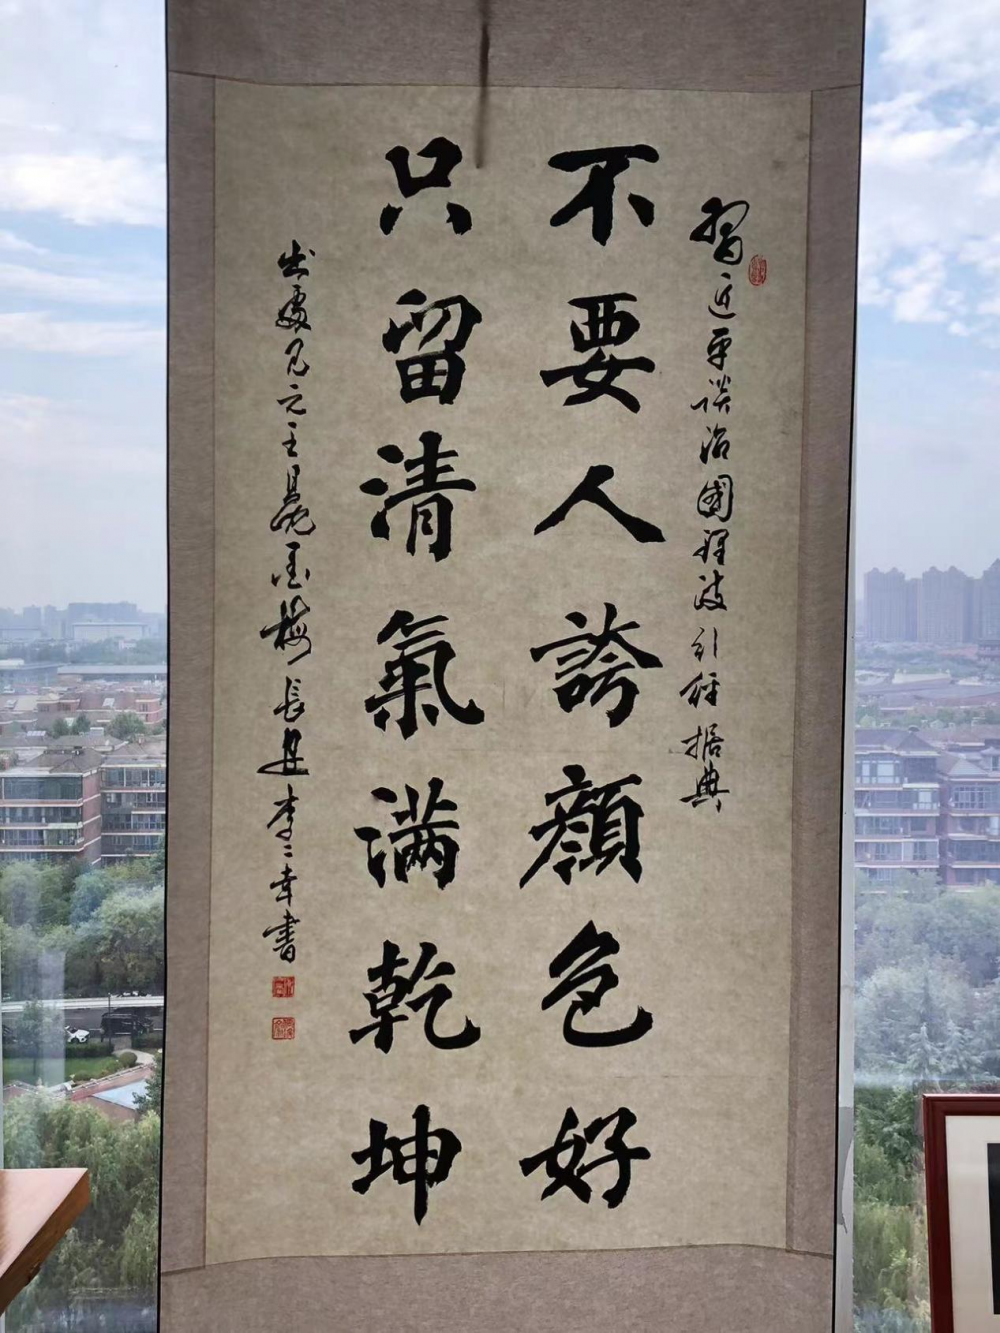 習近平談治國理政引經據典
不要人誇顏色好
只留清氣满乾坤
出處見元王冕墨梅長
李二幸書